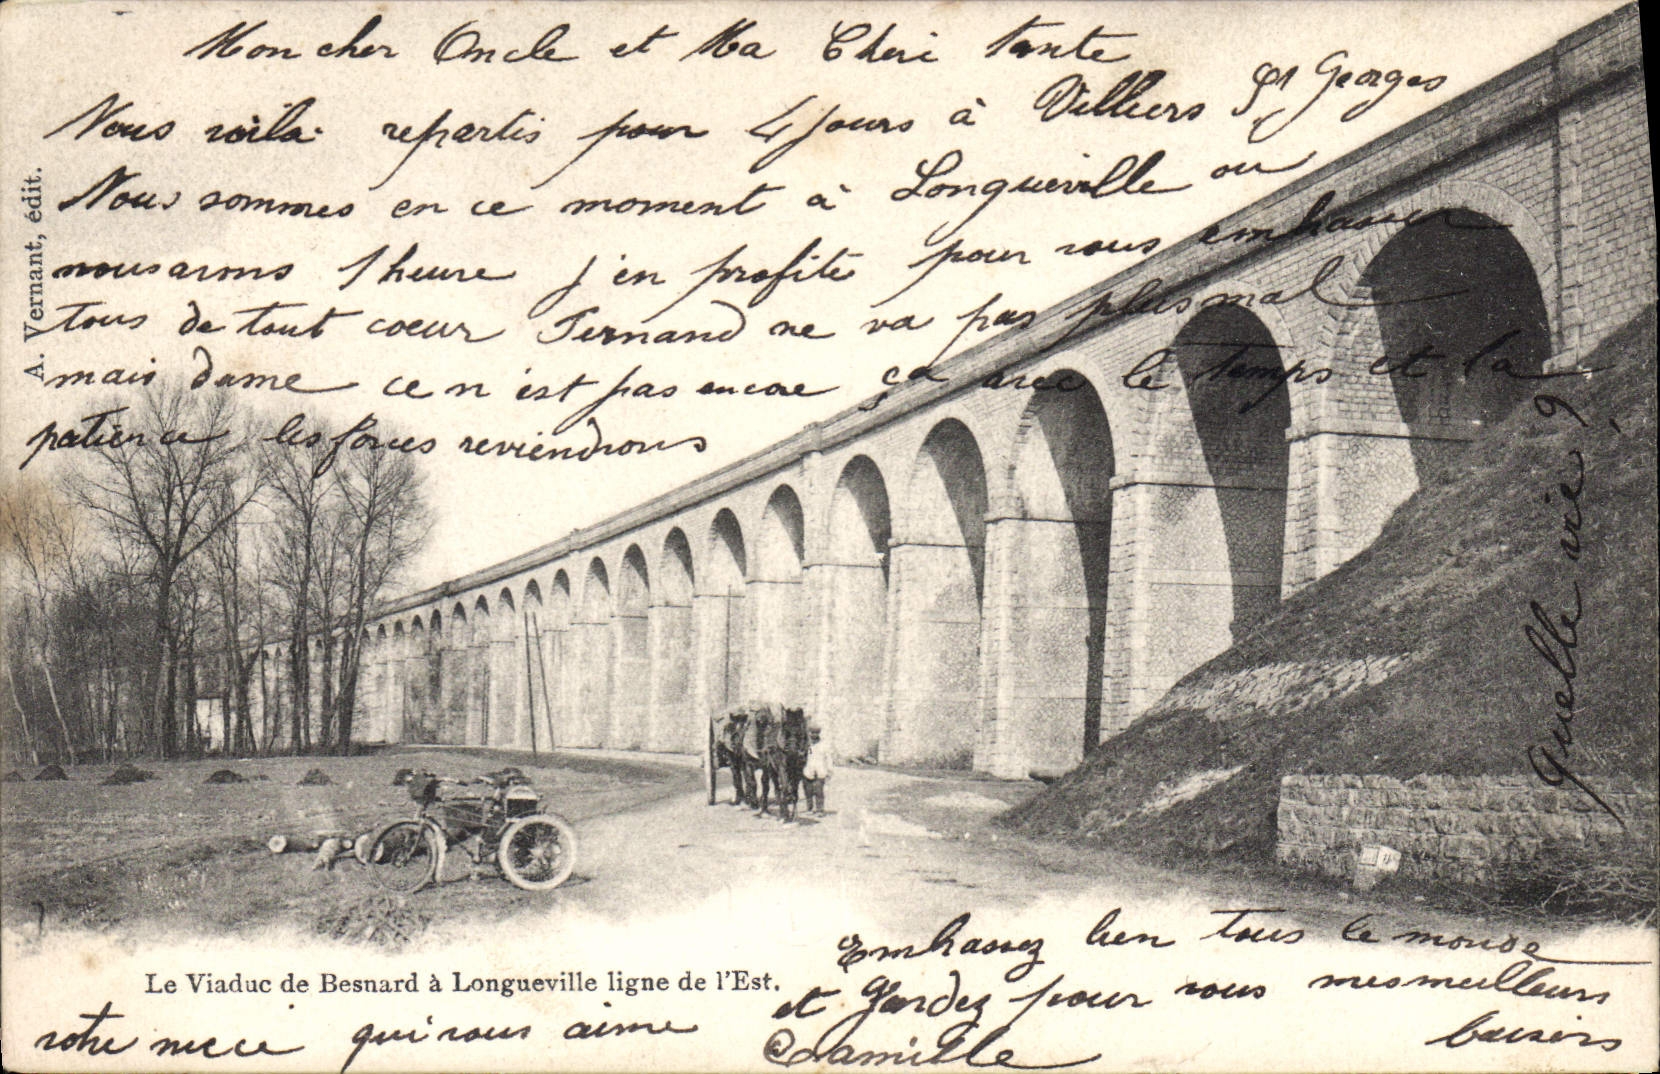 Mon cher Oncle et Ma Cheri tante
Nous voila repartis pour 4 jours à Villiers St Georges
Nous sommes en ce moment à Longueville ou
nous avons 1 heure j'en profite pour vous embrasser
tous de tout coeur Fernand ne va pas plus mal
mais dame ce n'est pas encore ça avec le temps et la
patience les forces reviendrons
Quelle vie ?
A. Vernant, édit.
Embrassez bien tous le monde
Le Viaduc de Besnard à Longueville ligne de l'Est.
et Gardez pour vous mes meilleurs
baisers
votre niece qui vous aime
Camille